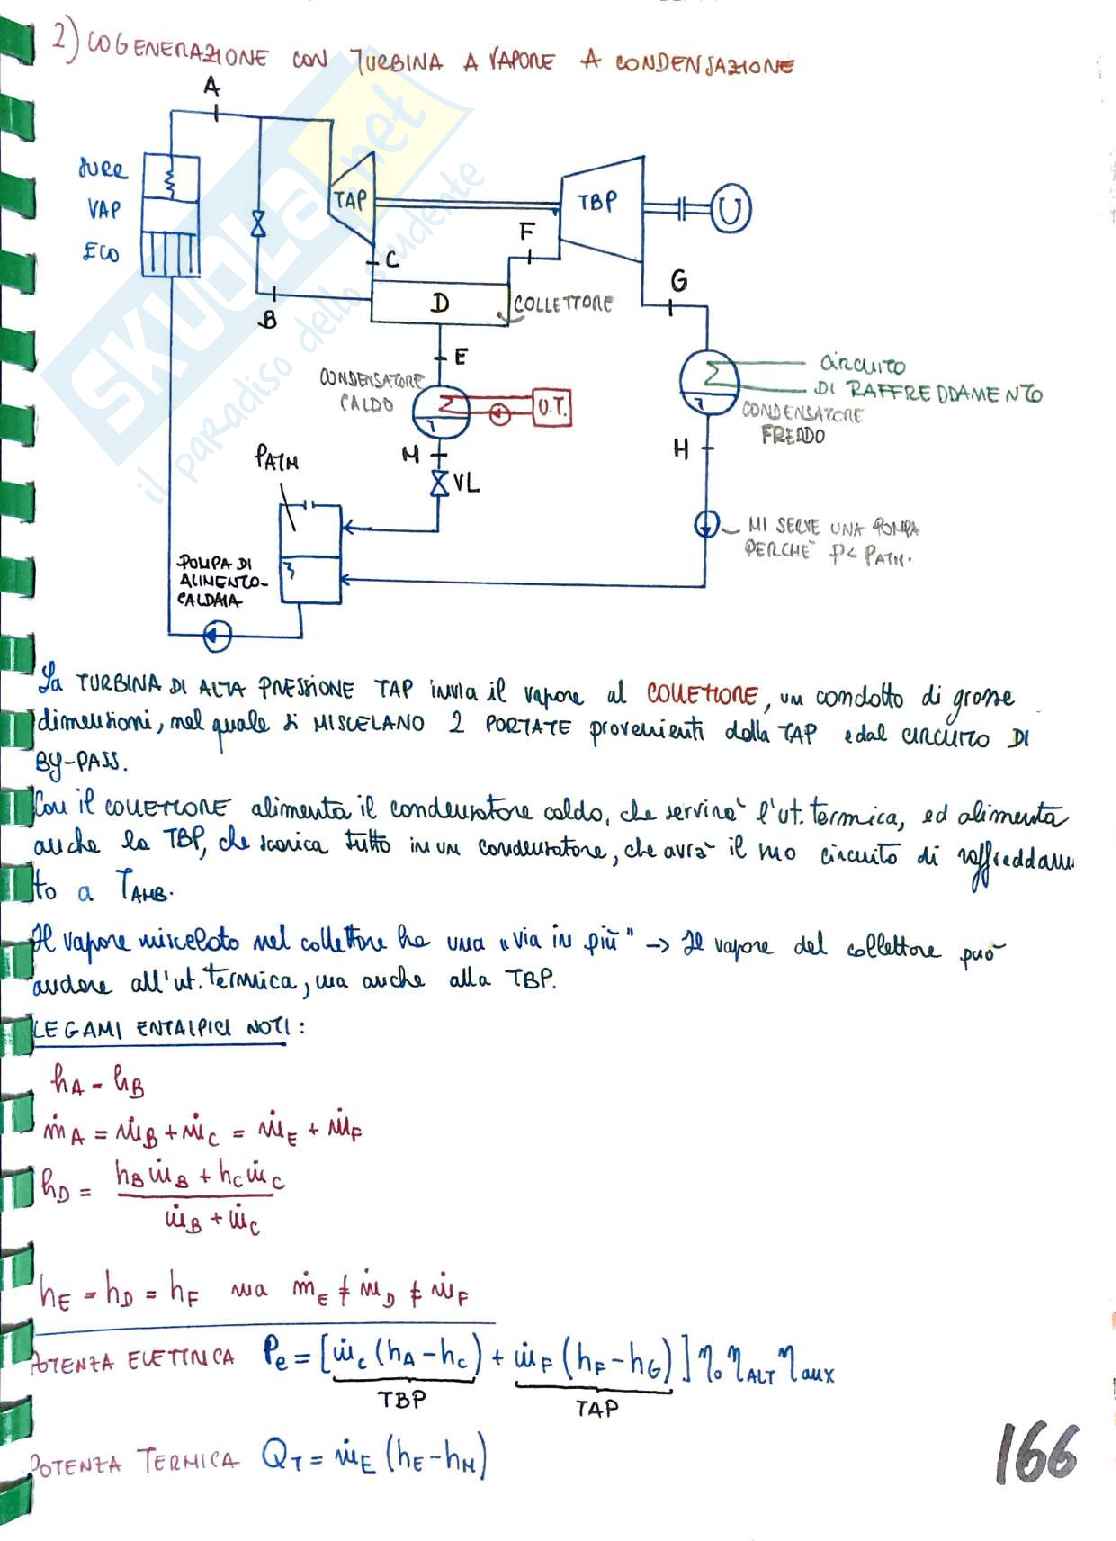 2) COGENERAZIONE CON TURBINA A VAPORE A CONDENSAZIONE
A
SURR
VAP
ECO
TAP
TBP
U
F
C
G
B
D
COLLETTORE
E
CONDENSATORE
CALDO
U.T.
CIRCUITO
DI RAFFREDDAMENTO
CONDENSATORE
FREDDO
M
H
PATM
VL
MI SERVE UNA POMPA
PERCHÈ P< PATM.
POMPA DI
ALIMENTO-
CALDAIA
La TURBINA DI ALTA PRESSIONE TAP invia il vapore al COLLETTORE, un condotto di grosse
dimensioni, nel quale si MISCELANO 2 PORTATE provenienti dalla TAP e dal CIRCUITO DI
BY-PASS.
Con il COLLETTORE alimenta il condensatore caldo, che servirà l'ut. termica, ed alimenta
anche la TBP, che scarica tutto in un condensatore, che avrà il suo circuito di raffreddam
to a TAMB.
Il vapore miscelato nel collettore ha una "via in più" -> Il vapore del collettore può
andare all'ut. termica, ma anche alla TBP.
LEGAMI ENTALPICI NOTI:
hA = hB
ṁA = ṁB + ṁC = ṁE + ṁF
hD = (hB ṁB + hC ṁC) / (ṁB + ṁC)
hE = hD = hF ma ṁE ≠ ṁD ≠ ṁF
POTENZA ELETTRICA Pe = [ṁc (hA - hc) + ṁF (hF - hG)] ηo ηALT ηaux
TBP TAP
POTENZA TERMICA QT = ṁE (hE - hM)
166
SKUOLA.net
il paradiso dello studente